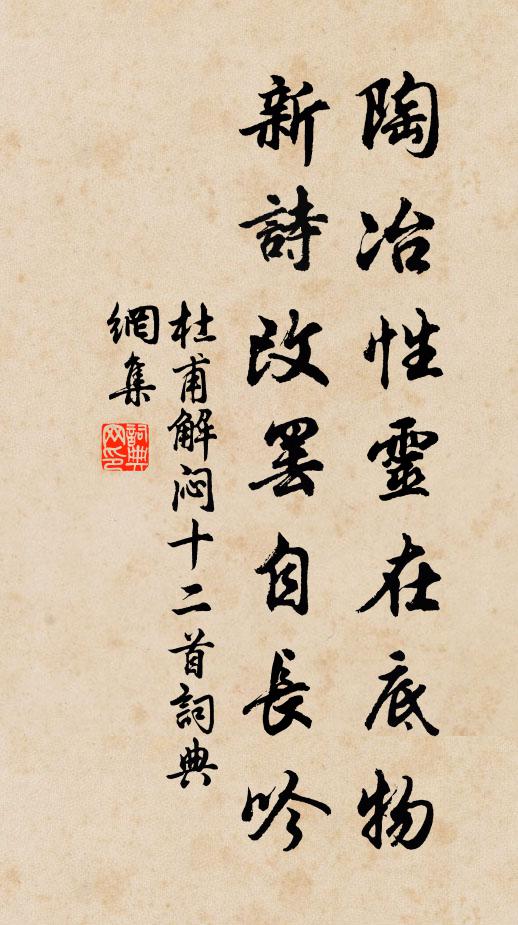 陶冶性靈在底物
新詩改罷自長吟
杜甫解闷十二首詞典
網集
詞典
网印